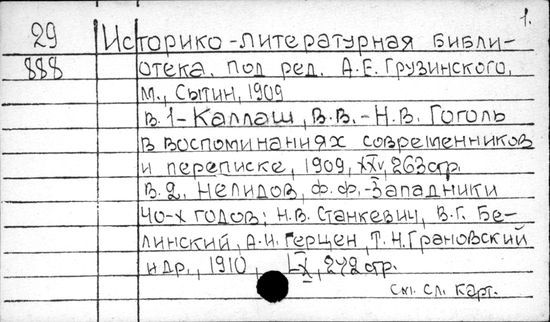 1.
29 Историко-литературная библи-
888 отека. Под ред. А.Е. Грузинского,
М., Сытин, 1909
В.1-Каллаш, В.В.-Н.В. Гоголь
в воспоминаниях современников
и переписке, 1909, XXV, 263стр.
В.2. Нелидов, Ф.Ф.-Западники
40-х годов; Н.В. Станкевич, В.Г. Бе-
линский, А.И. Герцен, Т.Н. Грановский
и др., 1910, 272 стр.
см. сл. карт.